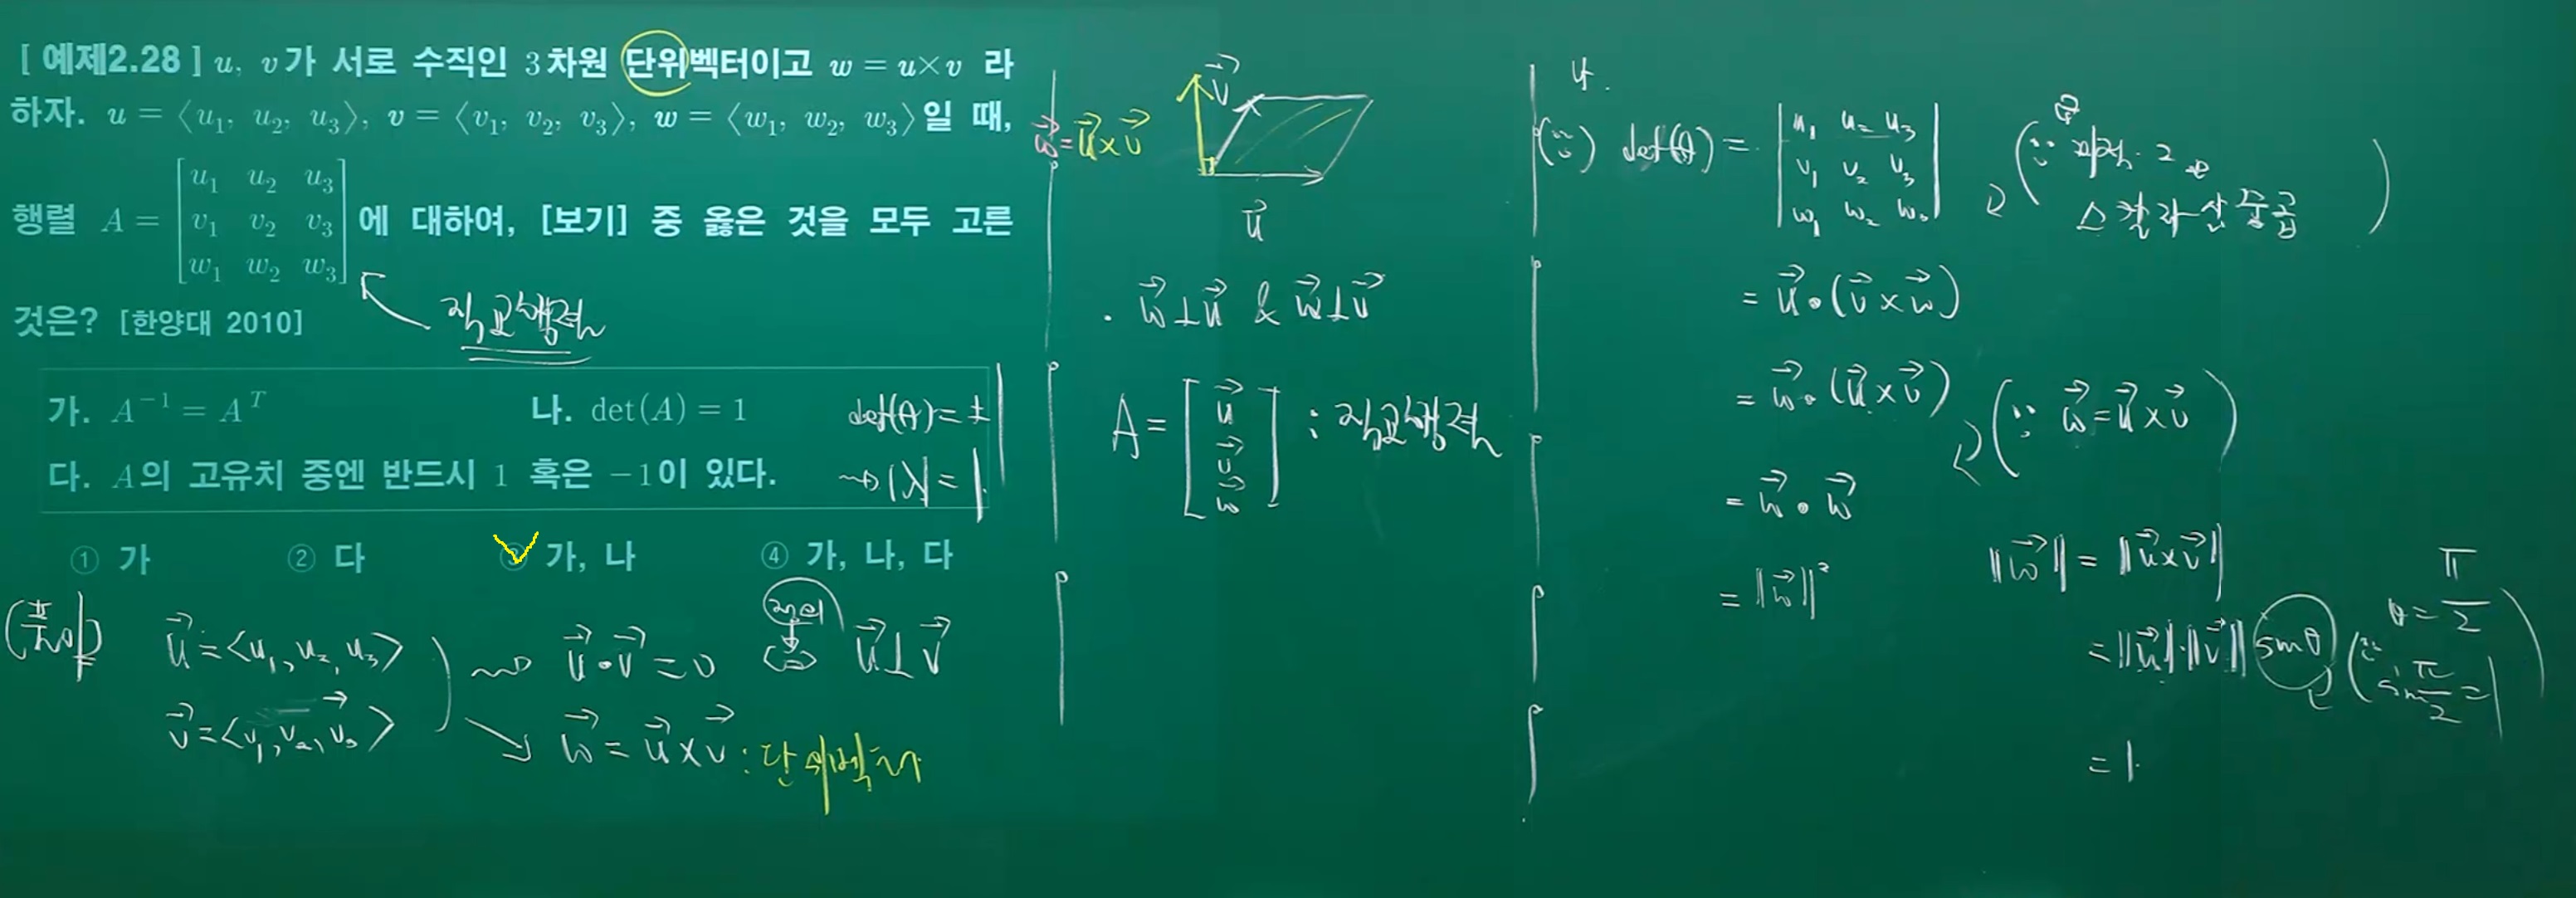 [ 예제2.28 ] u, v가 서로 수직인 3차원 단위벡터이고 w = u×v 라
하자. u = ⟨u₁, u₂, u₃⟩, v = ⟨v₁, v₂, v₃⟩, w = ⟨w₁, w₂, w₃⟩일 때,
행렬 A = [u₁ u₂ u₃; v₁ v₂ v₃; w₁ w₂ w₃] 에 대하여, [보기] 중 옳은 것을 모두 고른
것은? [한양대 2010]
직교행렬
가. A⁻¹ = Aᵀ 나. det(A) = 1
det(A) = ±1
다. A의 고유치 중엔 반드시 1 혹은 −1이 있다.
→ |λ| = 1.
① 가 ② 다 ③ 가, 나 ④ 가, 나, 다
(풀이)
u⃗ = <u₁, u₂, u₃>
v⃗ = <v₁, v₂, v₃>
u⃗ • v⃗ = 0
정의
⇔ u⃗ ⊥ v⃗
w⃗ = u⃗ × v⃗ : 단위벡터
w⃗ = u⃗ × v⃗
v⃗
u⃗
· w⃗ ⊥ u⃗ & w⃗ ⊥ v⃗
A = [u⃗; v⃗; w⃗] : 직교행렬
나.
(∵) det(A) = |u₁ u₂ u₃; v₁ v₂ v₃; w₁ w₂ w₃|
스칼라 삼중곱
= u⃗ • (v⃗ × w⃗)
= w⃗ • (u⃗ × v⃗)
(∵ w⃗ = u⃗ × v⃗)
= w⃗ • w⃗
= ‖w⃗‖²
‖w⃗‖ = ‖u⃗ × v⃗‖
= ‖u⃗‖·‖v⃗‖ sinθ
(∵ θ = π/2
sin π/2 = 1)
= 1.